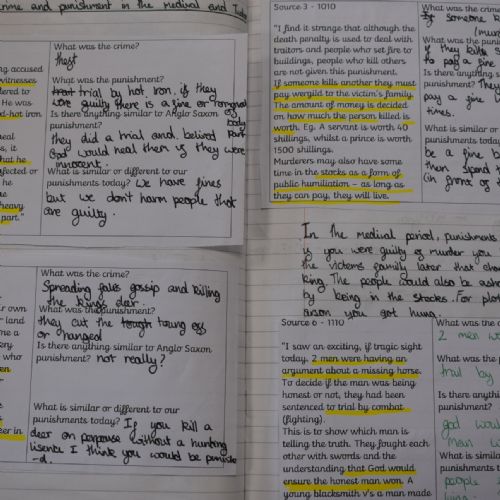 crime and punishment in the medival and
What was the crime?
theft
g accused
witnesses
dered to
. He was
d-hot iron
What was the punishment?
trial by hot iron. if they
were guilty there is a fine or
body
part
Is there anything similar to Anglo Saxon
punishment?
they did a trial and belived
God would heal them if they were
innocent.
heal
s, it
hat he
fected or
he
heavy
part."
What is similar or different to our
punishments today? we have fines
but we don't harm people that
are guilty.
What was the crime?
Spreading fales gossip and killing
the kings dear.
What was the punishment?
they cut the toung off
or hanged
Is there anything similar to Anglo Saxon
punishment? not really?
ir own
r land
me a
ery
who
een
eer in
What is similar or different to our
punishments today? If you kill a
deer on porpose without a hunting
lisents I think you would be punishe
-d.
Source 3 - 1010
"I find it strange that although the
death penalty is used to deal with
traitors and people who set fire to
buildings, people who kill others
are not given this punishment.
If someone kills another they must
pay wergild to the victim's family.
The amount of money is decided
on how much the person killed is
worth. Eg. A servant is worth 40
shillings, whilst a prince is worth
1500 shillings.
Murderers may also have some
time in the stocks as a form of
public humiliation - as long as
they can pay, they will live.
What was the crime
If someone
What was the puni
if they kill
to pay a
Is there anything
punishment? They
pay a fine
times.
What is similar or
punishments today
be a fine
then spend
(in front of
In the medival period, punishments
if you were guilty of murder you
the victims family later that
king. The people would also be
by being in the stocks. For
you got hung.
Source 6 - 1110
"I saw an exciting, if tragic sight
today. 2 men were having an
argument about a missing horse.
To decide if the man was being
honest or not, they had been
sentenced to trial by combat
(fighting).
This is to show which man is
telling the truth. They fought each
other with swords and the
understanding that God would
ensure the honest man won. A
young blacksmith v's a man made
What was the
2 men
What was the p
trial by
Is there anythi
punishment?
god would
man
What is simila
punishments
people